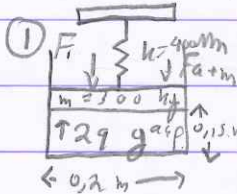 ① F₁ k=400N/m
Fa+m
m = 300 kg
↑2q gáz p. 0,15 m
0,2 m